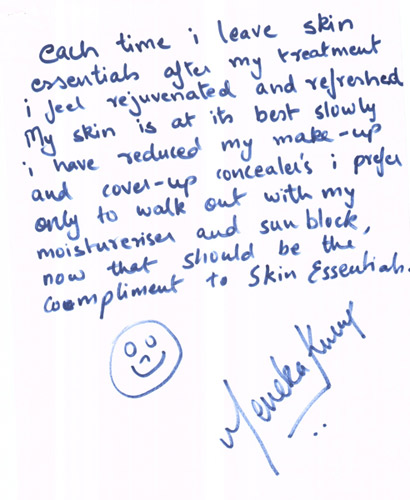 each time i leave skin
essentials after my treatment
i feel rejuvenated and refreshed
My skin is at its best slowly
i have reduced my make-up
and cover-up concealer's i prefer
only to walk out with my
moistureriser and sun block,
now that should be the
compliment to Skin Essentials.
Meneka